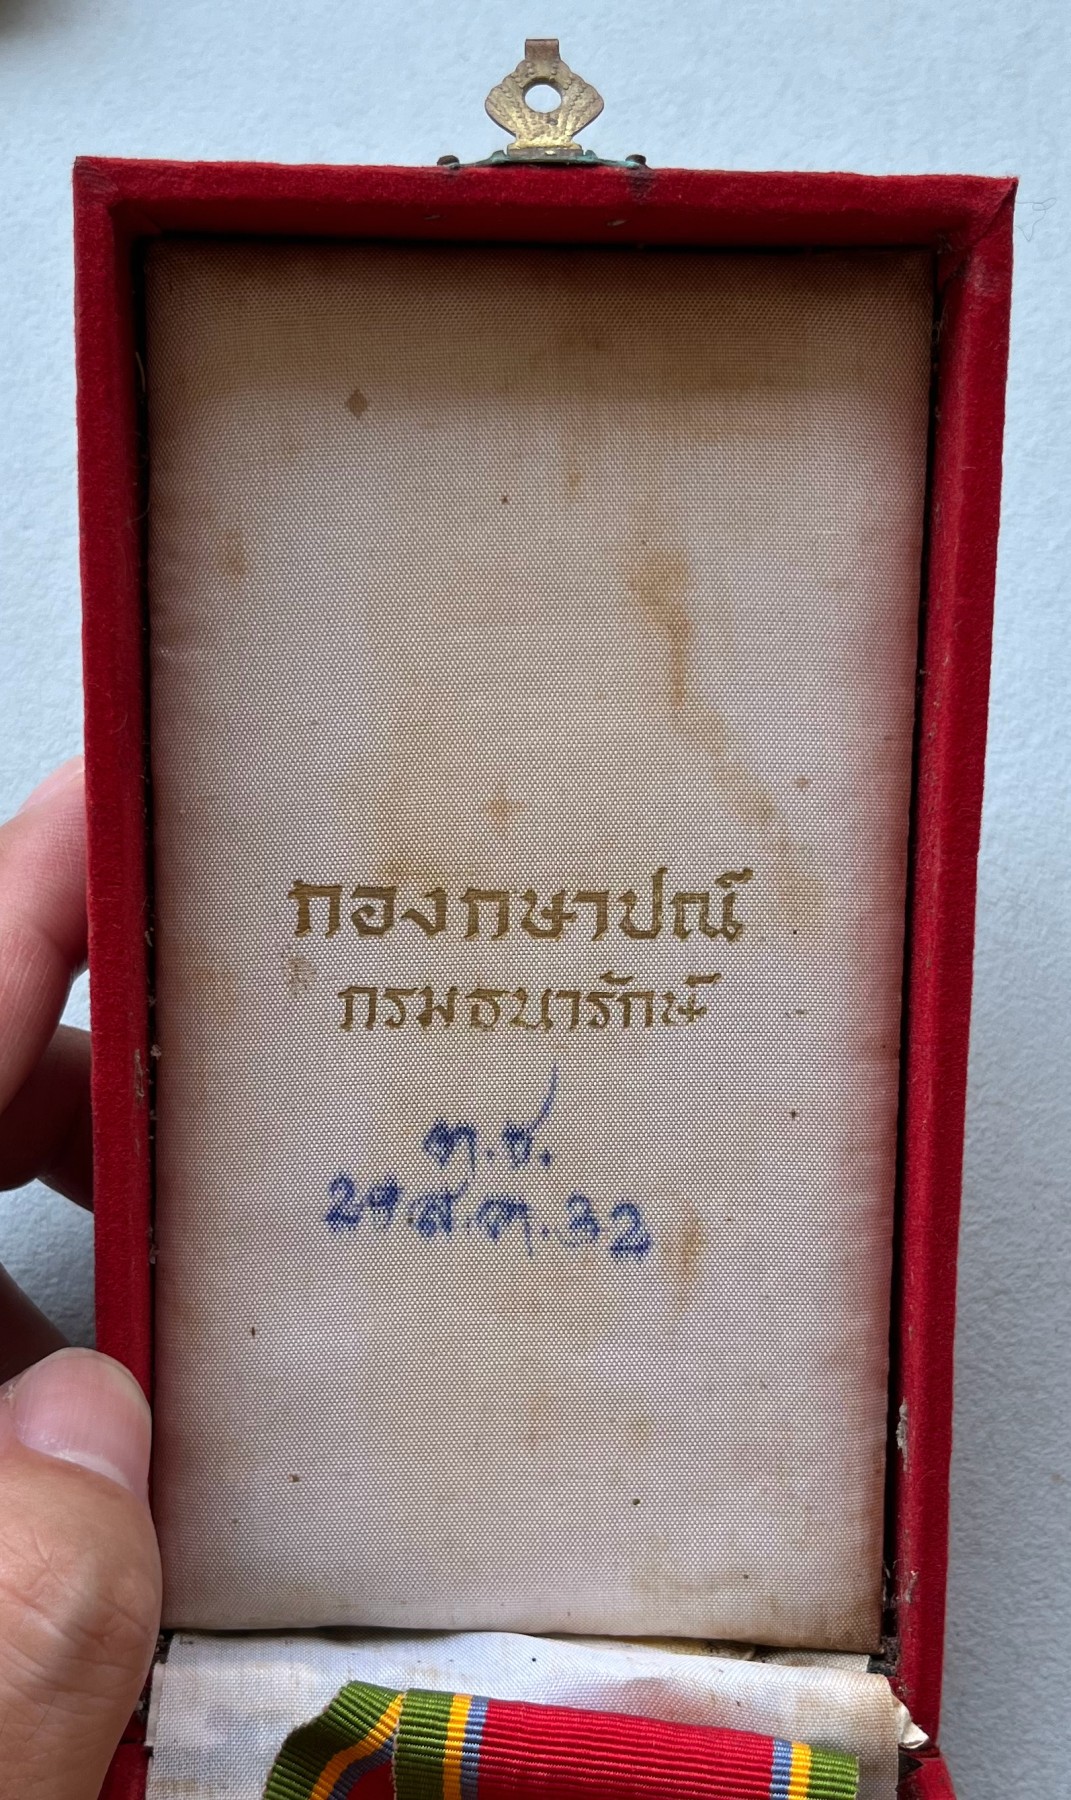 กองกษาปณ์
กรมธนารักษ์
ต.ช.
29.ส.ค.32